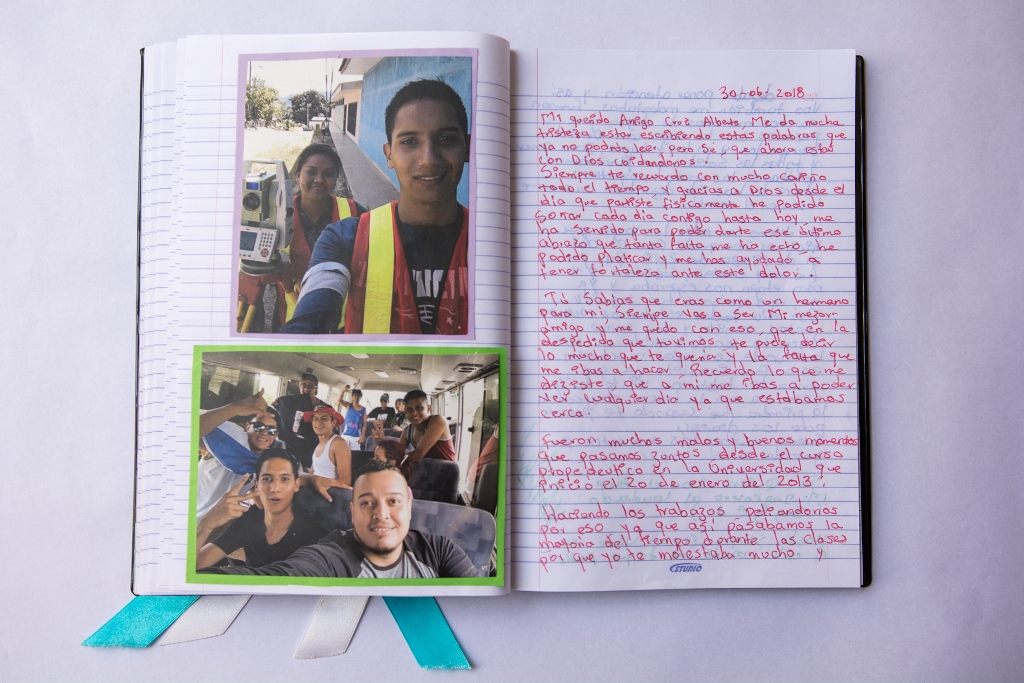 30-06-2018
Mi querido Amigo Cruz Alberto. Me da mucha
tristeza estar escribiendo estas palabras que
ya no podrás leer, pero se, que ahora estas
con Dios cuidandonos.
Siempre te recuerdo con mucho cariño
todo el tiempo y gracias a Dios desde el
día que partiste físicamente he podido
Soñar cada día contigo hasta hoy, me
ha servido para poder darte ese último
abrazo que tanta falta me ha echo, he
podido platicar y me has ayudado a
tener fortaleza ante este dolor.
Tú Sabias que eras como un hermano
para mi Siempre vas a Ser Mi mejor
Amigo y me quedo con eso, que en la
despedida que tuvimos te pude decir
lo mucho que te quería y la falta que
me ibas a hacer. Recuerdo lo que me
dijiste que a mi me ibas a poder
ver cualquier día ya que estabamos
cerca.
Fueron muchos malos y buenos momentos
que pasamos juntos desde el curso
propedeutico en la Universidad que
inicio el 20 de enero del 2013.
Haciendo los trabajos peliandonos
por eso ya que así pasabamos la
mayoria del tiempo durante las clases
por que yo te molestaba mucho y
STUDIO